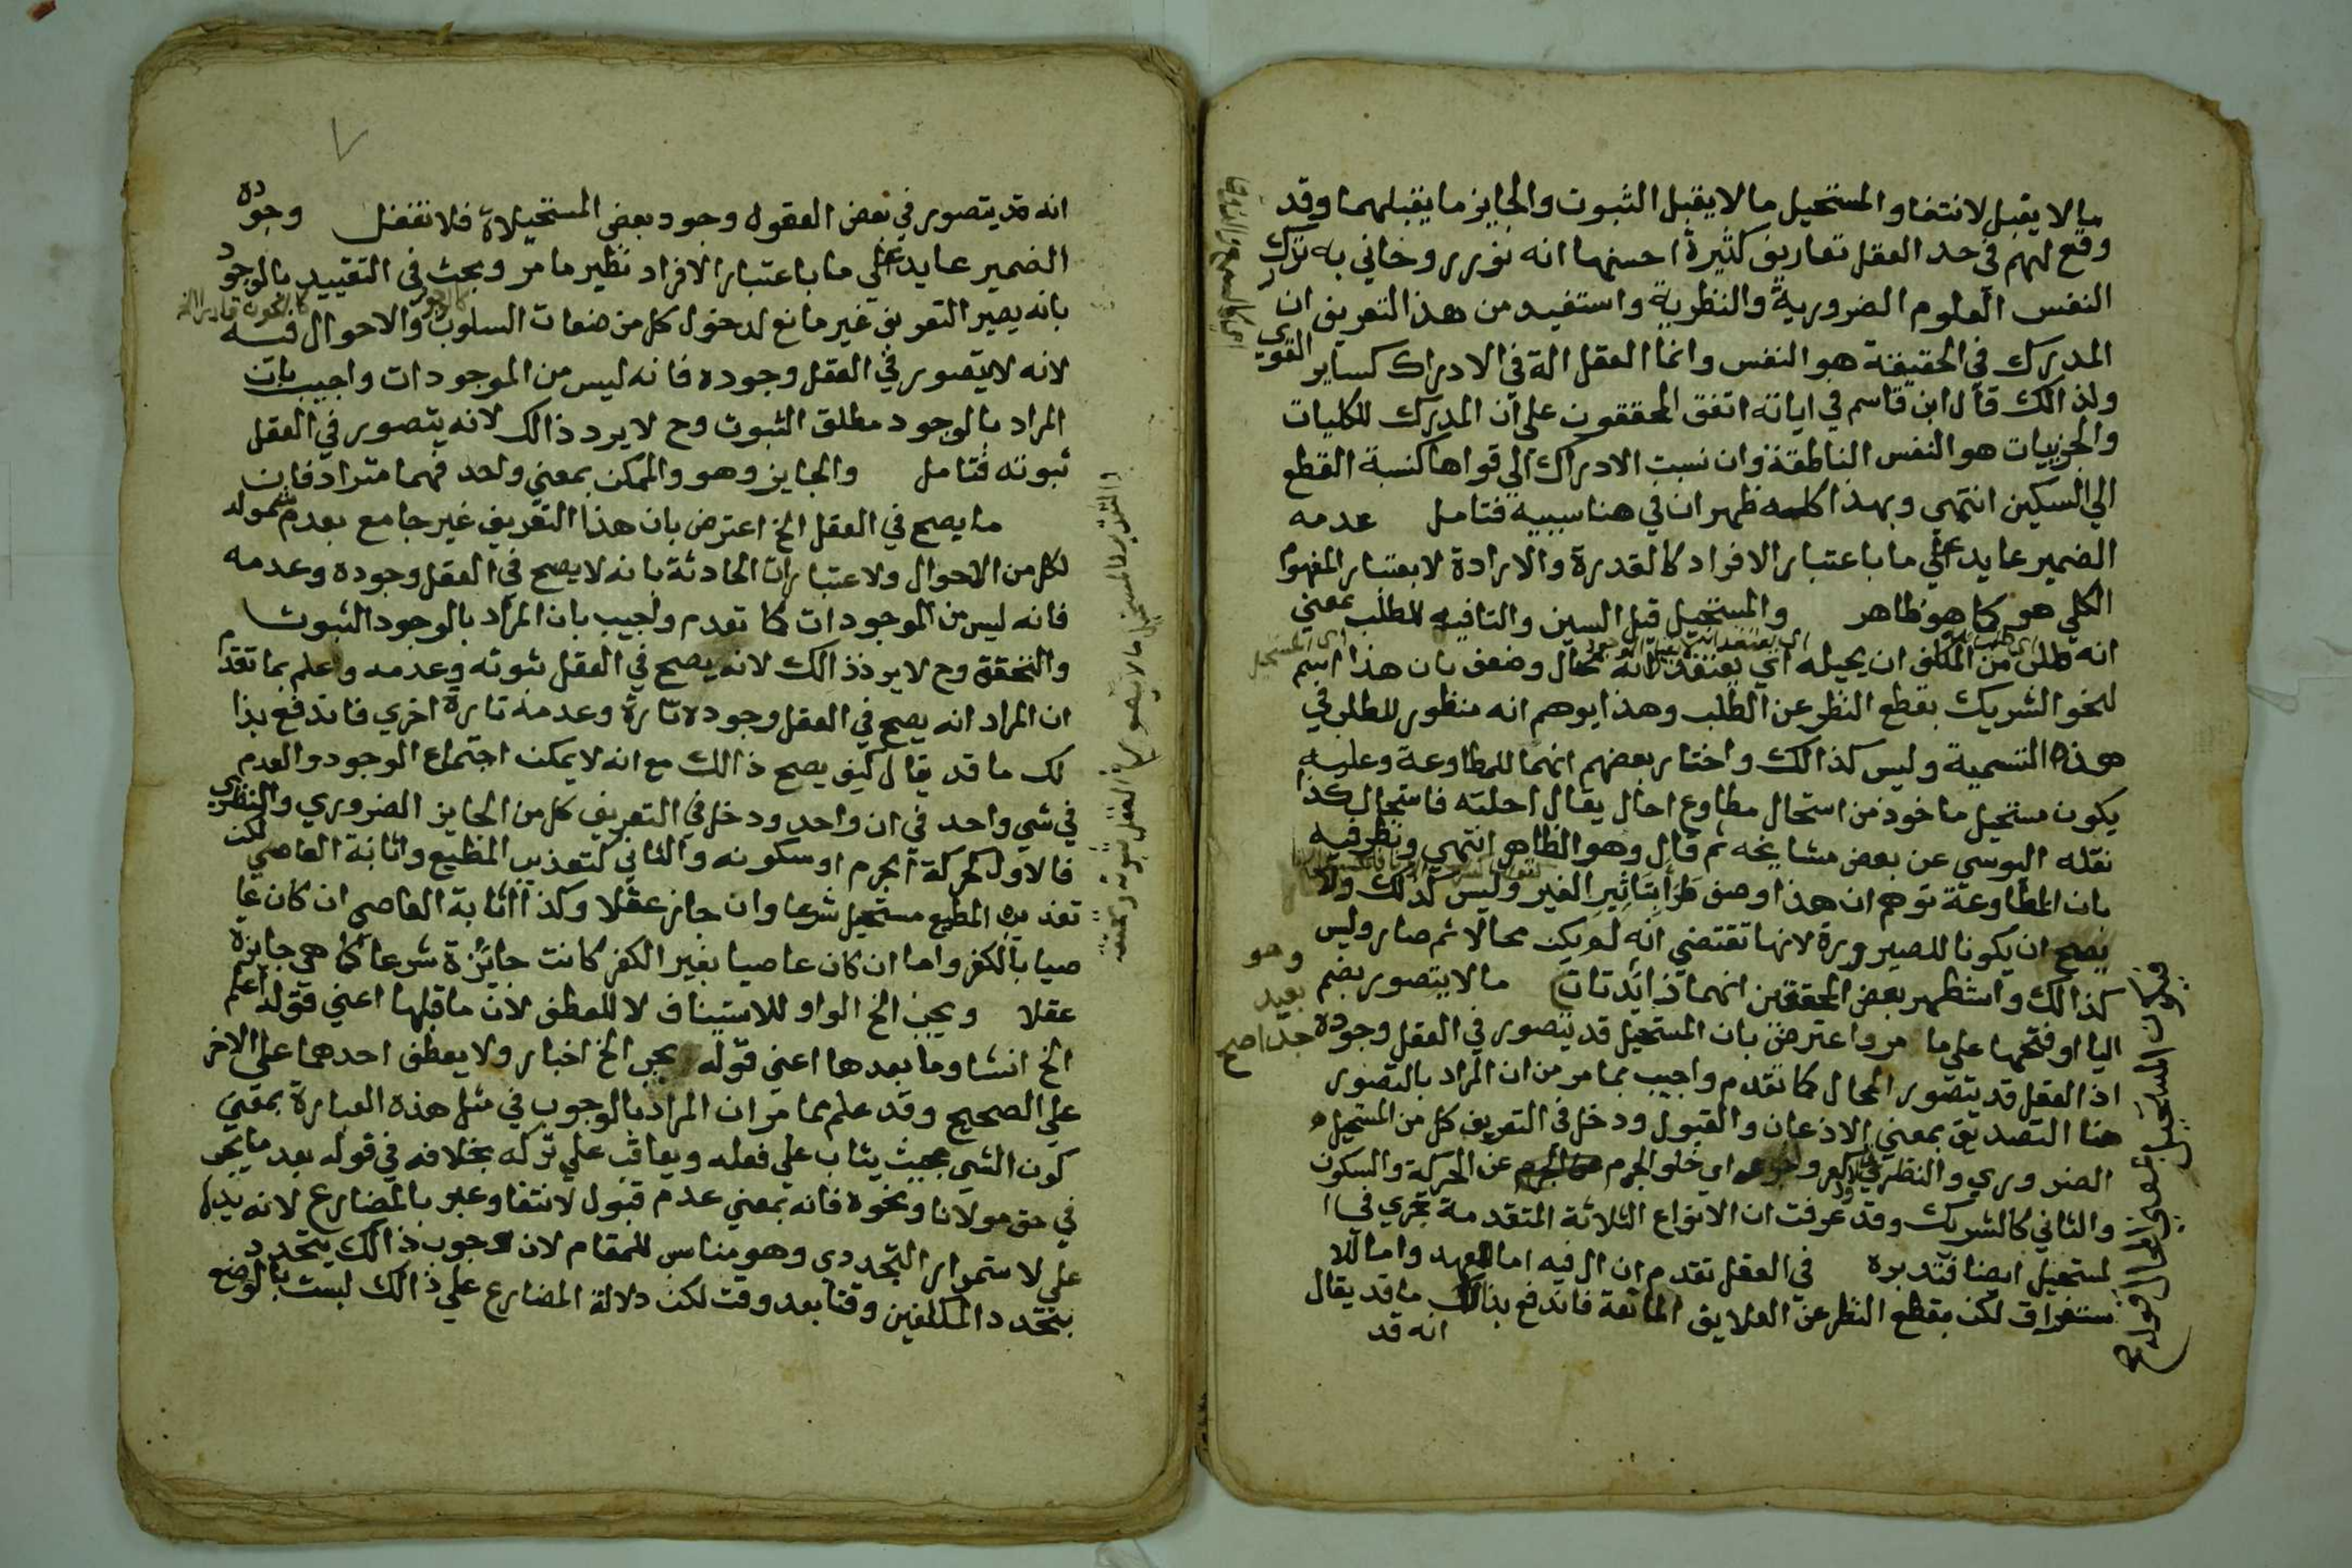 ما لا يقبل لانتفا والمستحيل ما لا يقبل الثبوت والجايز ما يقبلهما وقد
وقع لهم في حد العقل تعاريف كثيرة احسنها انه نور روحاني به تدرك
النفس العلوم الضرورية والنظرية واستفيد من هذا التعريف ان
المدرك في الحقيقة هو النفس وانما العقل الة في الادراك كساير القوي
ولذالك قال ابن قاسم في اياته اتفق المحققون علي ان المدرك للكليات
والجزييات هو النفس الناطقة وان نسبت الادراك الي قواها كنسبة القطع
الي السكين انتهي وبهذا كله ظهر ان في هنا سببيه فتامل عدمه
الضمير عايد علي ما باعتبار الافراد كالقدرة والارادة لا بعتبار المفهوم
الكلي هو كما هو ظاهر والمستحيل قيل السين والتا فيه للطلب بمعني
انه طلب من المكلف ان يحيله اي يعتقد انه محال وضعف بان هذا اسم
لنحو الشريك بقطع النظر عن الطلب وهذا يوهم انه منظور للطلب في
هذه التسمية وليس كذالك واختار بعضهم انهما للمطاوعة وعليه
يكون مستحيل ماخوذ من استحال مطاوع احال يقال احلته فاستحال كذا
نقله اليوسي عن بعض مشايخه ثم قال وهو الظاهر انتهي ونظر فيه
بان المطاوعة توهم ان هذا وصف طرا بتاثير الغير وليس كذلك ولا
يصح ان يكونا للصيرورة لانها تقتضي انه لم يكن محالا ثم صار وليس
كذالك واستظهر بعض المحققين انهما زايدتان ما لا يتصور بضم
اليا او فتحها علي ما مر واعترض بان المستحيل قد يتصور في العقل وجوده
اذ العقل قد يتصور المحال كما تقدم واجيب بما مر من ان المراد بالتصور
هنا التصديق بمعني الاذعان والقبول ودخل في التعريف كل من المستحيل
الضروري والنظري اي خلو الجرم عن الحركة والسكون
والثاني كالشريك وقد عرفت ان الانواع الثلاثة المتقدمة تجري في ا
لمستحيل ايضا فتدبره في العقل تقدم ان ال فيه اما للعهد واما للا
ستغراق لكن بقطع النظر عن العلايق المانعة فاندفع بذالك ما قد يقال
انه قد
وهو
بعيد
جدا صح
انه قد يتصور في بعض العقول وجود بعض المستحيلاة فلا تغفل وجوده
الضمير عايد علي ما باعتبار الافراد نظير ما مر وبحث في التقييد بالوجود
بانه يصير التعريف غير مانع لدخول كل من صفات السلوب والاحوال فيه
لانه لا يتصور في العقل وجوده فانه ليس من الموجودات واجيب بان
المراد بالوجود مطلق الثبوت وح لا يرد ذالك لانه يتصور في العقل
ثبوته فتامل والجايز وهو والممكن بمعني واحد فهما مترادفان
ما يصح في العقل الخ اعترض بان هذا التعريف غير جامع بعدم شموله
لكل من الاحوال ولاعتبارات الحادثة بانه لا يصح في العقل وجوده وعدمه
فانه ليس من الموجودات كما تقدم واجيب بان المراد بالوجود الثبوت
والتحقق وح لا يرد ذالك لانه يصح في العقل ثبوته وعدمه واعلم بما تقدم
ان المراد انه يصح في العقل وجوده تارة وعدمه تارة اخري فاندفع بذا
لك ما قد يقال كيف يصح ذالك مع انه لا يمكن اجتماع الوجود والعدم
في شي واحد في ان واحد ودخل في التعريف كل من الجايز الضروري والنظري
فالاول كحركة الجرم او سكونه والثاني كتعذيب المطيع واثابة العاصي لكن
تعذيب المطيع مستحيل شرعا وان جاز عقلا وكذا اثابة العاصي ان كان عا
صيا بالكفر واما ان كان عاصيا بغير الكفر كانت جائزة شرعا كما هي جايزة
عقلا ويجب الخ الواو للاستيناف لا للعطف لان ما قبلها اعني قوله اعلم
الخ انشا وما بعدها اعني قوله يجب الخ اخبار ولا يعطف احدهما علي الاخر
علي الصحيح وقد علم مما مر ان المراد بالوجوب في مثل هذه العبارة بمعني
كون الشي بحيث يثاب علي فعله ويعاقب علي تركه بخلافه في قوله بعد ما يجب
في حق مولانا ونحوه فانه بمعني عدم قبول لانتفا وعبر بالمضارع لانه يدل
علي لاستمرار التجددي وهو مناسب للمقام لان وجوب ذالك يتجدد
بتجدد المكلفين وقتا بعد وقت لكن دلالة المضارع علي ذالك ليست بالوضع